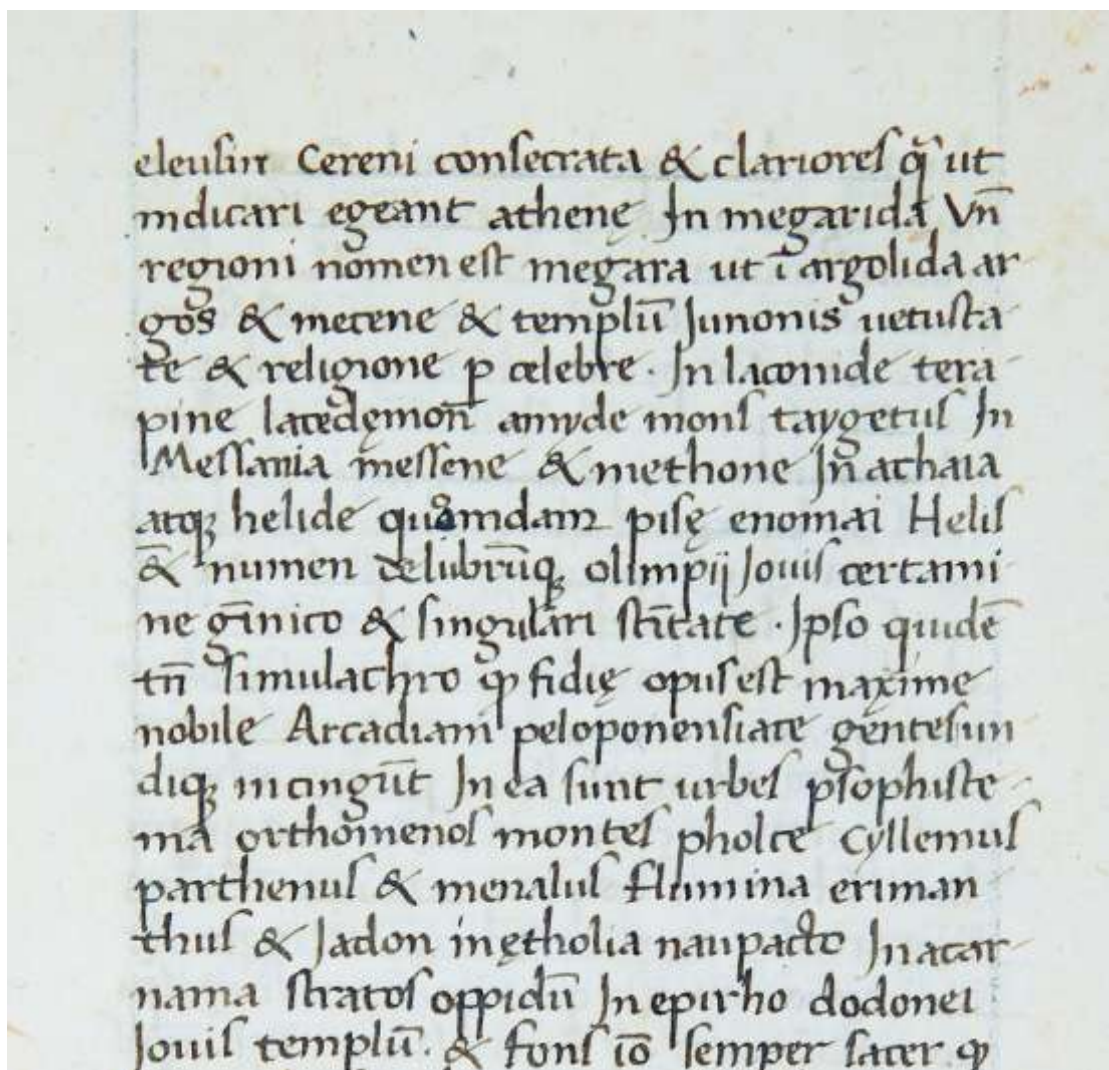 eleusin Cereni consecrata & clariores q̃ ut
indicari egeant athenę In megarida Vn̄
regioni nomen est megara ut ĩ argolida ar
gos & mecene & templū Junonis uetusta
te & religione p celebre · In laconide tera
pine lacedęmon̄ amyde mons taygetus In
Messania messene & methone In achaia
atq; helide quõmdam pisę enomai Helis
&̄ numen delubrūq; olimpij Jouis certami
ne gīnico & singulari sc̄titate · Ipso quidē
tn̄ simulachro qp fidię opus est maxime
nobile Arcadiam peloponensiace gentes un
diq; incingūt In ea sunt urbes psophis te
ma orthomenos montes pholce Cyllemus
parthenus & menalus flumina eriman
thus & Jadon in ętholia naupacto In acar
nama stratos oppidū In epirho dodonei
Jouis templū. & fons iō semper sacer qp